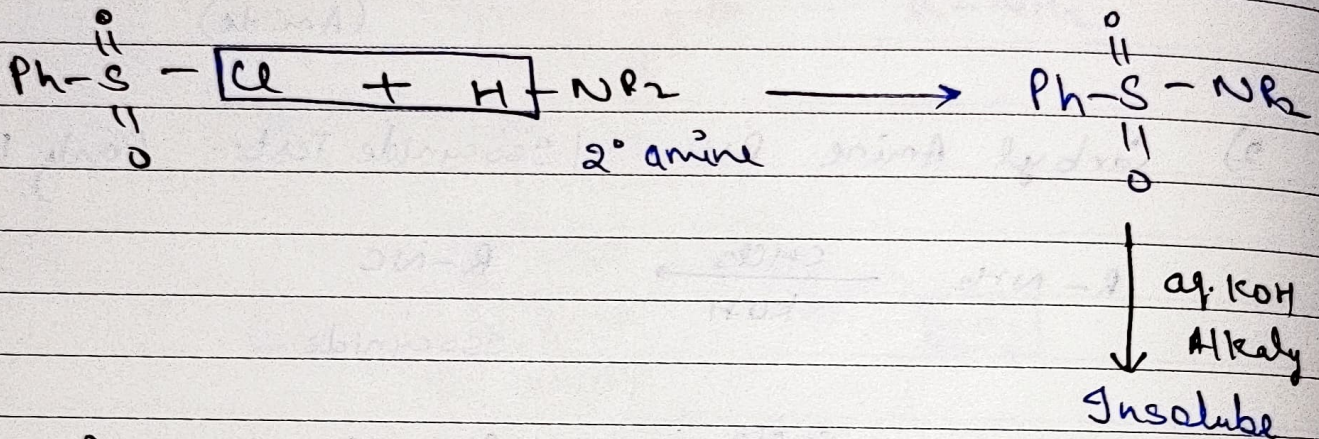 O O
Ph-S - Cl + H-NR2 ⟶ Ph-S-NR2
O 2° amine O
aq. KOH
Alkaly
Insoluble